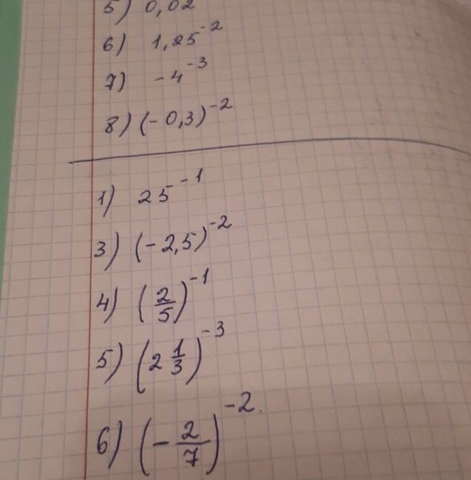 5) 0,02
6) 1,25^-2
7) -4^-3
8) (-0,3)^-2
1) 25^-1
3) (-2,5)^-2
4) (2/5)^-1
5) (2 1/3)^-3
6) (-2/7)^-2.